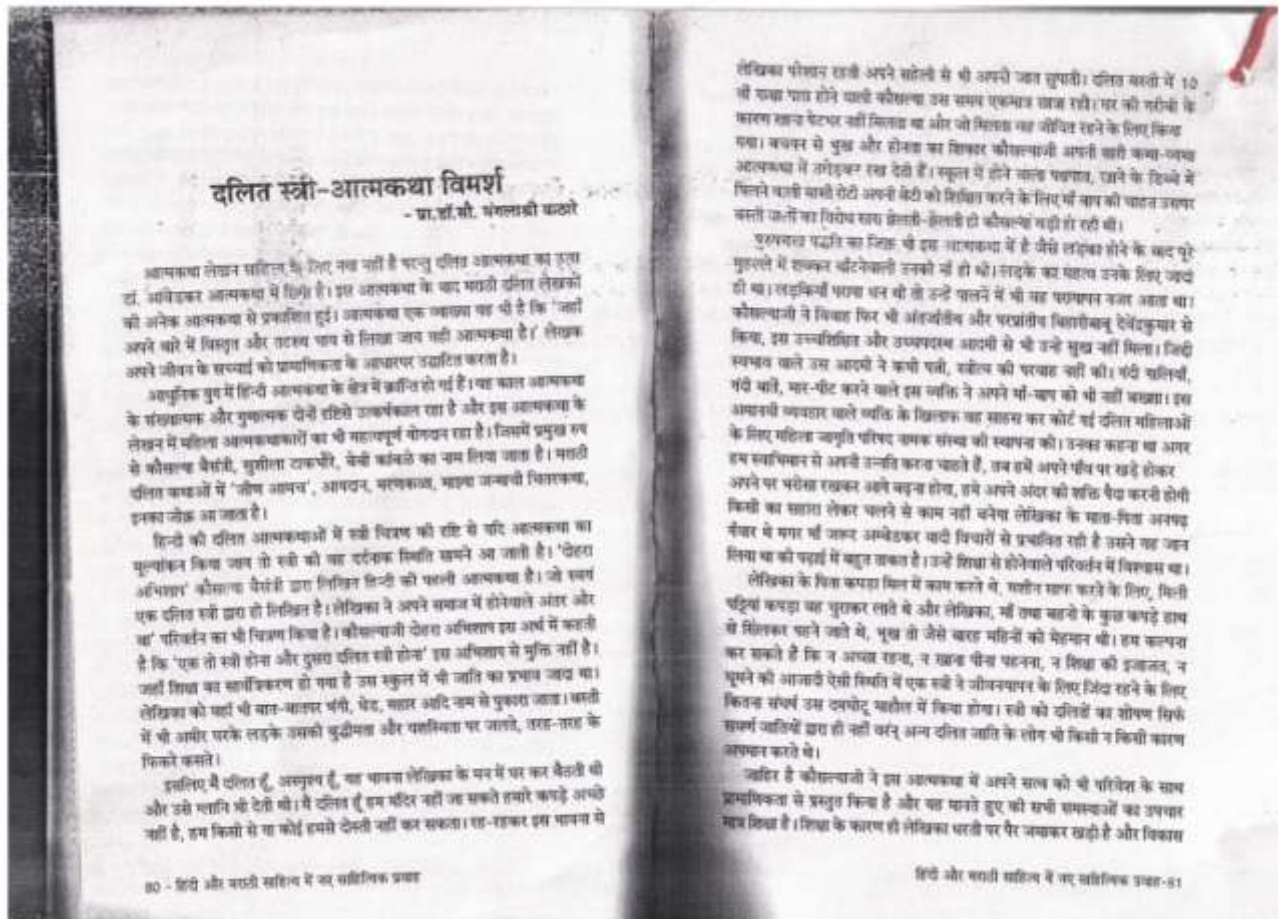 दलित स्त्री-आत्मकथा विमर्श
- प्रा.डॉ.सौ. मंगलाश्री कठारे
आत्मकथा लेखन साहित्य के लिए नया नहीं है परन्तु दलित आत्मकथा का
डॉ. आंबेडकर आत्मकथा में है। इस आत्मकथा के बाद मराठी दलित लेखकों
की अनेक आत्मकथा से प्रकाशित हुई। आत्मकथा एक व्याख्या यह भी है कि 'जहाँ
अपने बारे में विस्तृत और तटस्थ भाव से लिखा जाय वही आत्मकथा है।' लेखक
अपने जीवन के सच्चाई को प्रामाणिकता के आधारपर उद्घाटित करता है।
आधुनिक युग में हिन्दी आत्मकथा के क्षेत्र में क्रान्ति हो गई हैं। यह काल आत्मकथा
के संख्यात्मक और गुणात्मक दोनों दृष्टिसे उत्कर्षकाल रहा है और इस आत्मकथा के
लेखन में महिला आत्मकथाकारों का भी महत्वपूर्ण योगदान रहा है। जिसमें प्रमुख रुप
से कौसल्या बैसंत्री, सुशीला टाकभौरे, बेबी कांबळे का नाम लिया जाता है। मराठी
दलित कथाओं में 'जीण आमचं', आयदान, मरणकळा, माझ्या जन्माची चित्तरकथा,
इनका जीक्र आ जाता है।
हिन्दी की दलित आत्मकथाओं में स्त्री चित्रण की दृष्टि से यदि आत्मकथा का
मूल्यांकन किया जाय तो स्त्री की वह दर्दनाक स्थिति सामने आ जाती है। 'दोहरा
अभिशाप' कौसल्या बैसंत्री द्वारा लिखित हिन्दी की पहली आत्मकथा है। जो स्वयं
एक दलित स्त्री द्वारा ही लिखित है। लेखिका ने अपने समाज में होनेवाले अंतर और
था' परिवर्तन का भी चित्रण किया है। कौसल्याजी दोहरा अभिशाप इस अर्थ में कहती
है कि 'एक तो स्त्री होना और दुसरा दलित स्त्री होना' इस अभिशाप से मुक्ति नहीं है।
जहाँ शिक्षा का सार्वत्रिकरण हो गया है उस स्कूल में भी जाति का प्रभाव जादा था।
लेखिका को यहाँ भी बात-बातपर भंगी, धेड, महार आदि नाम से पुकारा जाता। बस्ती
में भी अमीर घरके लडके उसकी बुद्धीमता और यशस्विता पर जलते, तरह-तरह के
फिकरे कसते।
इसलिए मैं दलित हूँ, अस्पृश्य हूँ, यह भावना लेखिका के मन में घर कर बैठती थी
और उसे ग्लानि भी देती थी। मैं दलित हूँ हम मंदिर नहीं जा सकते हमारे कपड़े अच्छे
नहीं है, हम किसी से या कोई हमसे दोस्ती नहीं कर सकता। रह-रहकर इस भावना से
80 - हिंदी और मराठी साहित्य में नए साहित्यिक प्रवाह
लेखिका परेशान रहती अपने सहेली से भी अपनी जात छुपाती। दलित बस्ती में 10
वी कक्षा पास होने वाली कौसल्या उस समय एकमात्र छात्रा रही। घर की गरीबी के
कारण खाना पेटभर नहीं मिलता था और जो मिलता वह जीवित रहने के लिए किया
गया। बचपन से भुख और हीनता का शिकार कौसल्याजी अपनी सारी कथा-व्यथा
आत्मकथा में उधेड़कर रख देती हैं। स्कूल में होने वाला पक्षपात, खाने के डिब्बे में
मिलने वाली बासी रोटी अपनी बेटी को शिक्षित करने के लिए माँ बाप की चाहत उसपर
बस्ती वालों का विरोध सारा झेलती-झेलती ही कौसल्या बड़ी हो रही थी।
पुरुषसत्ता पद्धति का जिक्र भी इस आत्मकथा में है जैसे लड़का होने के बाद पूरे
मुहल्ले में शक्कर बाँटनेवाली उनकी माँ ही थी। लड़के का महत्व उनके लिए जादा
ही था। लड़कियाँ पराया धन थी तो उन्हें पालने में भी यह परायापन नजर आता था।
कौसल्याजी ने विवाह फिर भी अंतर्जातीय और परप्रांतीय बिहारीबाबू देवेंद्रकुमार से
किया, इस उच्चशिक्षित और उच्चपदस्थ आदमी से भी उन्हे सुख नहीं मिला। जिद्दी
स्वभाव वाले उस आदमी ने कभी पत्नी, स्त्रीत्व की परवाह नहीं की। गंदी गालियाँ,
गंदी बातें, मार-पीट करने वाले इस व्यक्ति ने अपने माँ-बाप को भी नहीं बख्शा। इस
अमानवी व्यवहार वाले व्यक्ति के खिलाफ वह साहस कर कोर्ट गई दलित महिलाओं
के लिए महिला जागृति परिषद नामक संस्था की स्थापना की। उनका कहना था अगर
हम स्वाभिमान से अपनी उन्नति करना चाहते हैं, तब हमें अपने पाँव पर खड़े होकर
अपने पर भरोसा रखकर आगे बढ़ना होगा, हमे अपने अंदर की शक्ति पैदा करनी होगी
किसी का सहारा लेकर चलने से काम नहीं बनेगा लेखिका के माता-पिता अनपढ़
गँवार थे मगर माँ जरूर अम्बेडकर वादी विचारों से प्रभावित रही है उसने यह जान
लिया था की पढ़ाई में बहुत ताकत है। उन्हें शिक्षा से होनेवाले परिवर्तन में विश्वास था।
लेखिका के पिता कपड़ा मिल में काम करते थे, मशीन साफ करने के लिए, मिली
पट्टियां कपड़ा वह चुराकर लाते थे और लेखिका, माँ तथा बहनो के कुछ कपड़े हाथ
से सिलकर पहने जाते थे, भूख तो जैसे बारह महिनों की मेहमान थी। हम कल्पना
कर सकते हैं कि न अच्छा रहना, न खाना पीना पहनना, न शिक्षा की इजाजत, न
घूमने की आजादी ऐसी स्थिति में एक स्त्री ने जीवनयापन के लिए जिंदा रहने के लिए
कितना संघर्ष उस दमघोटू माहौल में किया होगा। स्त्री को दलितों का शोषण सिर्फ
सवर्ण जातियों द्वारा ही नहीं वरंन् अन्य दलित जाति के लोग भी किसी न किसी कारण
अपमान करते थे।
जाहिर है कौसल्याजी ने इस आत्मकथा में अपने सत्य को भी परिवेश के साथ
प्रामाणिकता से प्रस्तुत किया है और यह मानते हुए की सभी समस्याओं का उपचार
मात्र शिक्षा है। शिक्षा के कारण ही लेखिका धरती पर पैर जमाकर खड़ी है और विकास
हिंदी और मराठी साहित्य में नए साहित्यिक प्रवाह-81